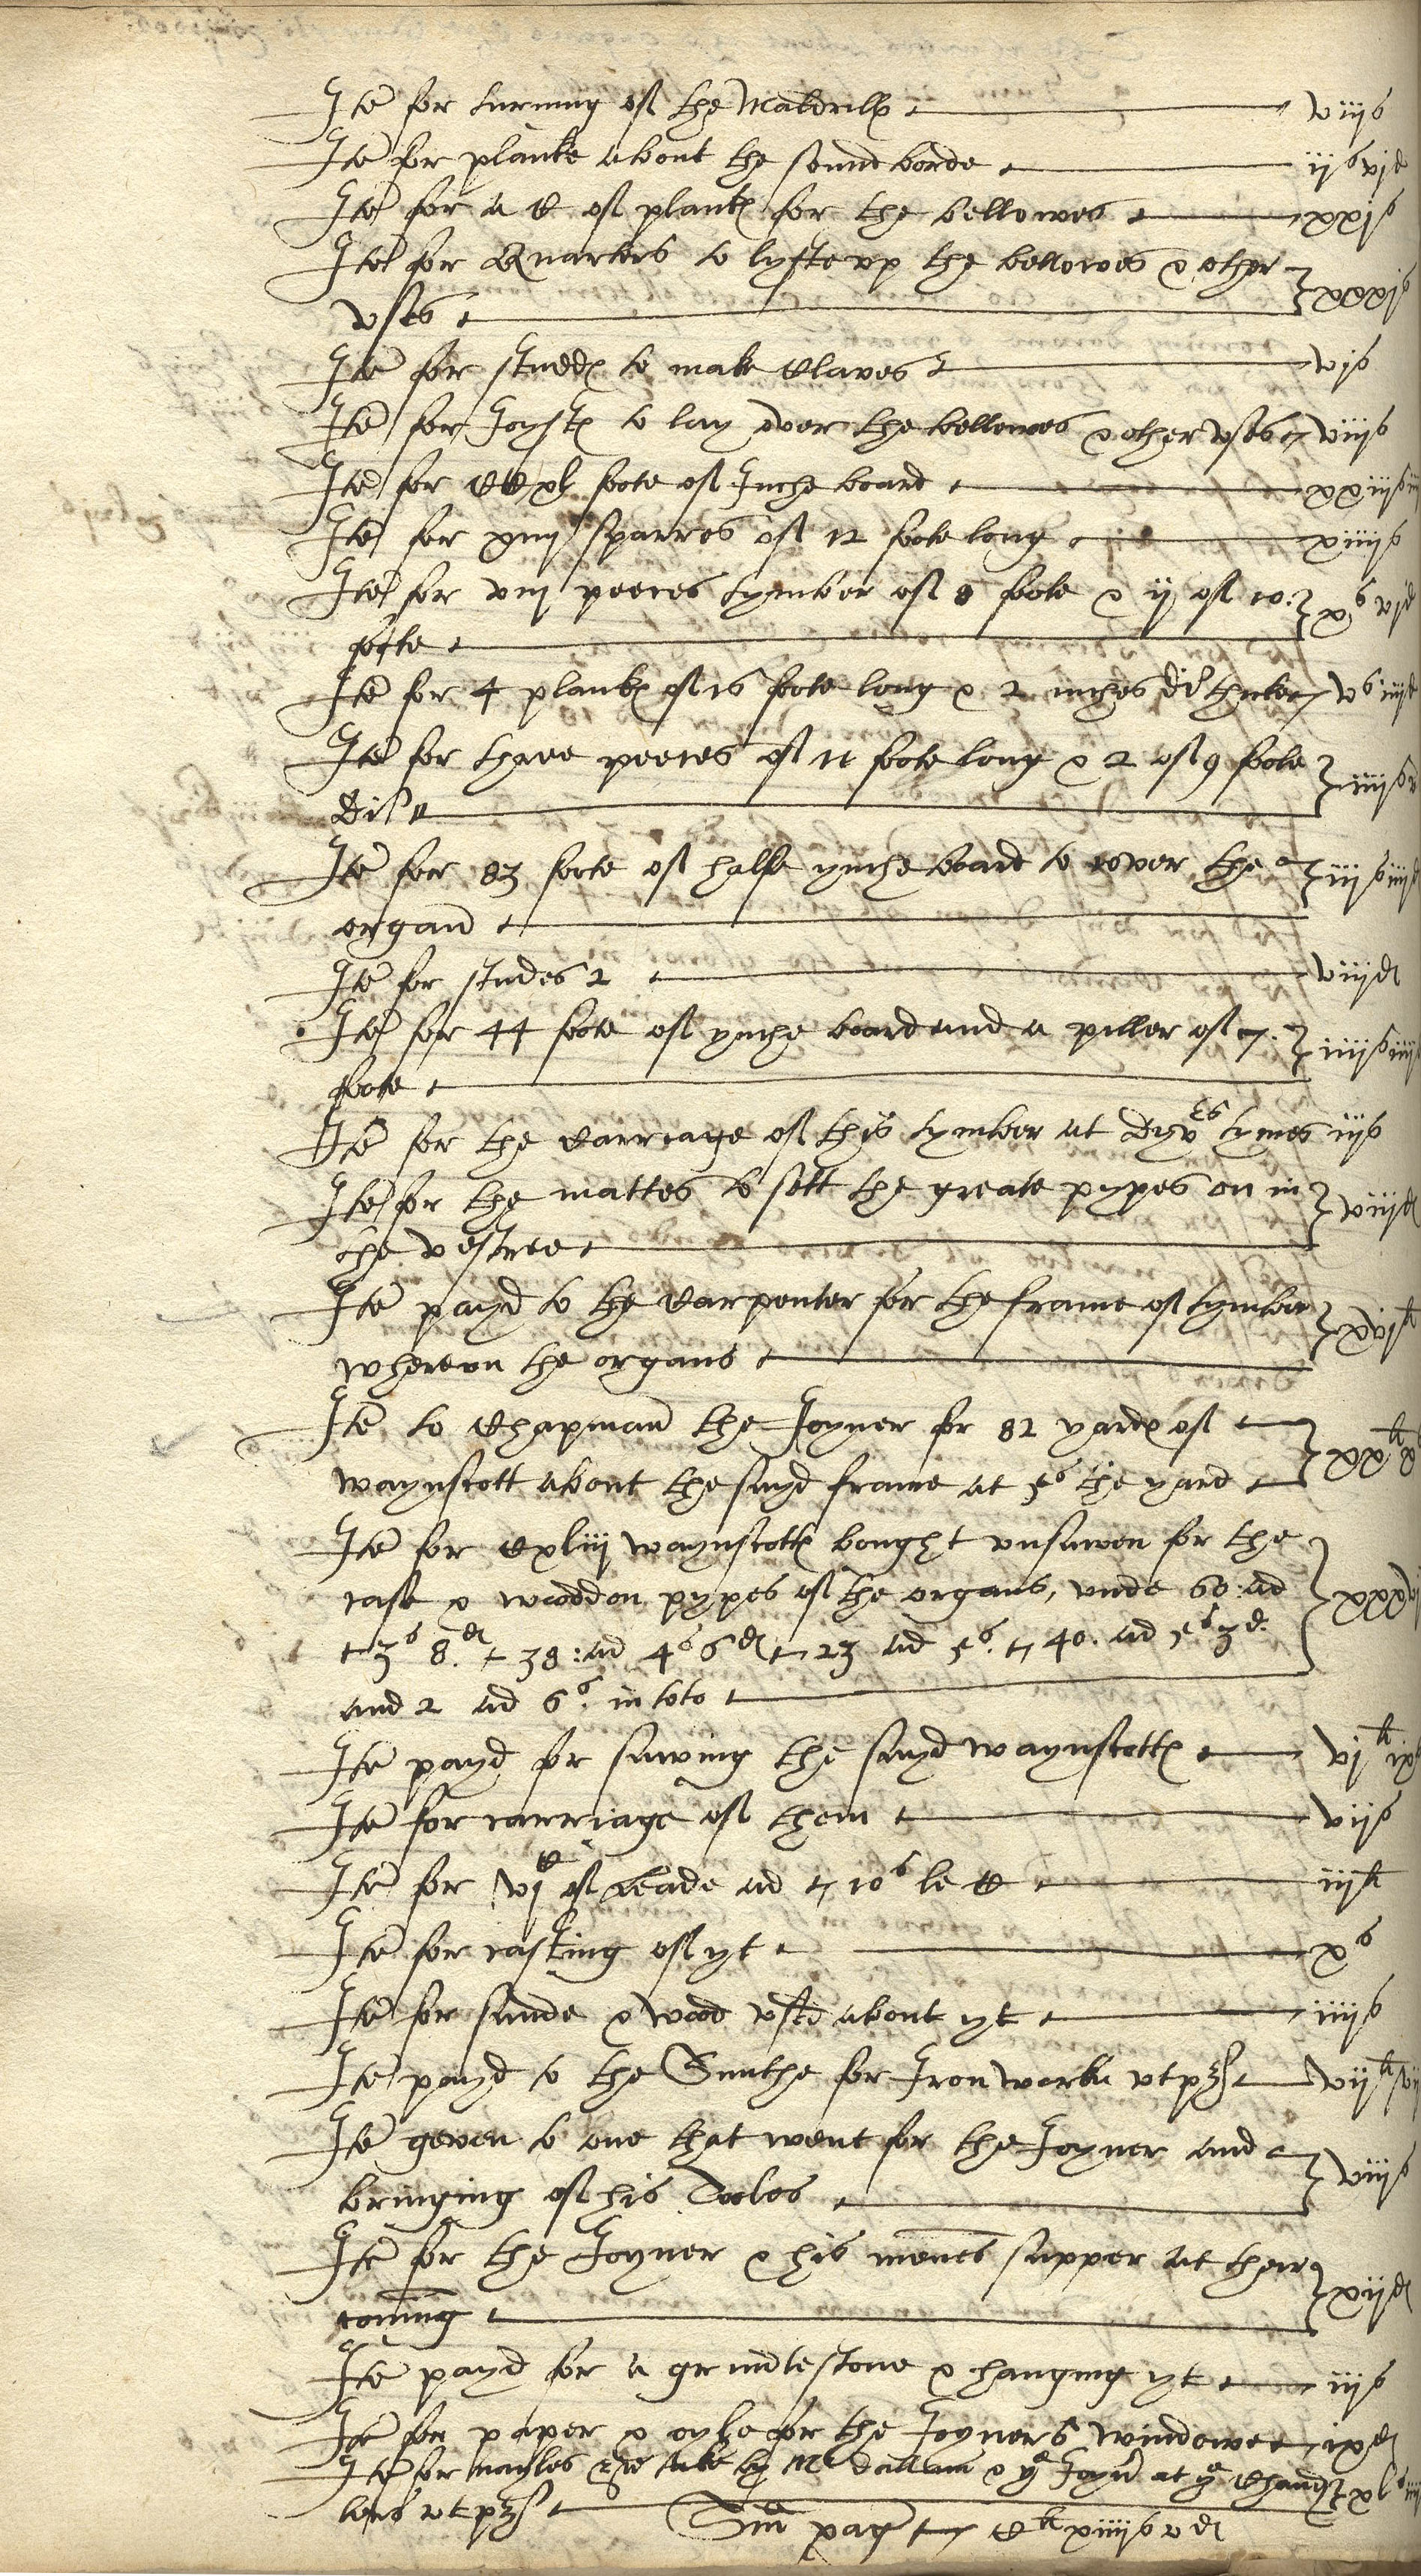 Ite for turning of the Mabdrill viijs
Ite for planke about the sound borde ijs vjd
Ite for a C of plank for the bellowes xxjs
Ite for Quarters to lyfte vp the bellowes & other xxxjs
vses
Ite for studd to make Claves vjs
Ite for Joyst to lay over the bellowes & other vses viijs
Ite for CCxl foote of Inche board xxiijs
Ite for xiiij sparres of 12 foote long xiiijs
Ite for viij peeces tymber of 8 foote & ij of 10: xs vjd
foote
Ite for 4 plank of 16 foote long & 2 inches di thicke vs iiijd
Ite for three peeces of 11 foote long & 2 of 9 foote iiijs
di
Ite for 83 foote of halfe ynche board to cover the iijs iiijd
organ
Ite for studes 2 viijd
Ite for 44 foote of ynche board and a piller of 7. iiijs iiijd
foote
Ite for the Carriage of this tymber at dyves tymes iijs
Ite for the mattes to sett the greate pypes on in viijd
the vestree
Ite payd to the Carpenter for the frame of tymber xvjli
whereon the organs
Ite to Chapman the Joyner for 82 yard of xxli xs
waynscott about the sayd frame at 5s the yard
Ite for Cxliij waynscott bought vnsawen for the
case & wooddon pypes of the organs, vnde 60: ad
3s 8d 38: ad 4s 6d 23 ad 5s. 40. ad 5s 3d.
and 2 ad 6s. in toto
Ite payd for sawing the sayd waynscott vjli ixs
Ite for carriage of them vijs
Ite for vjC of Leade ad 10s le C iijli
Ite for casting of yt xs
Ite for sande & wood vsed about yt iiijs
Ite payd to the Smithe for Iron worke vtpz vijli
Ite geven to one that went for the Joyner and viijs
bringing of his Tooles
Ite for the Joyner & his menes supper at their xijd
coming
Ite payd for a grindlestone & hanging yt iijs
Ite for paper & oyle for the Joyners windowe ixd
Ite for nayles take by Mr dallam & ye Joyner at ye Chand xls
lers vtpz
Sm pag Cli xiiijs vd